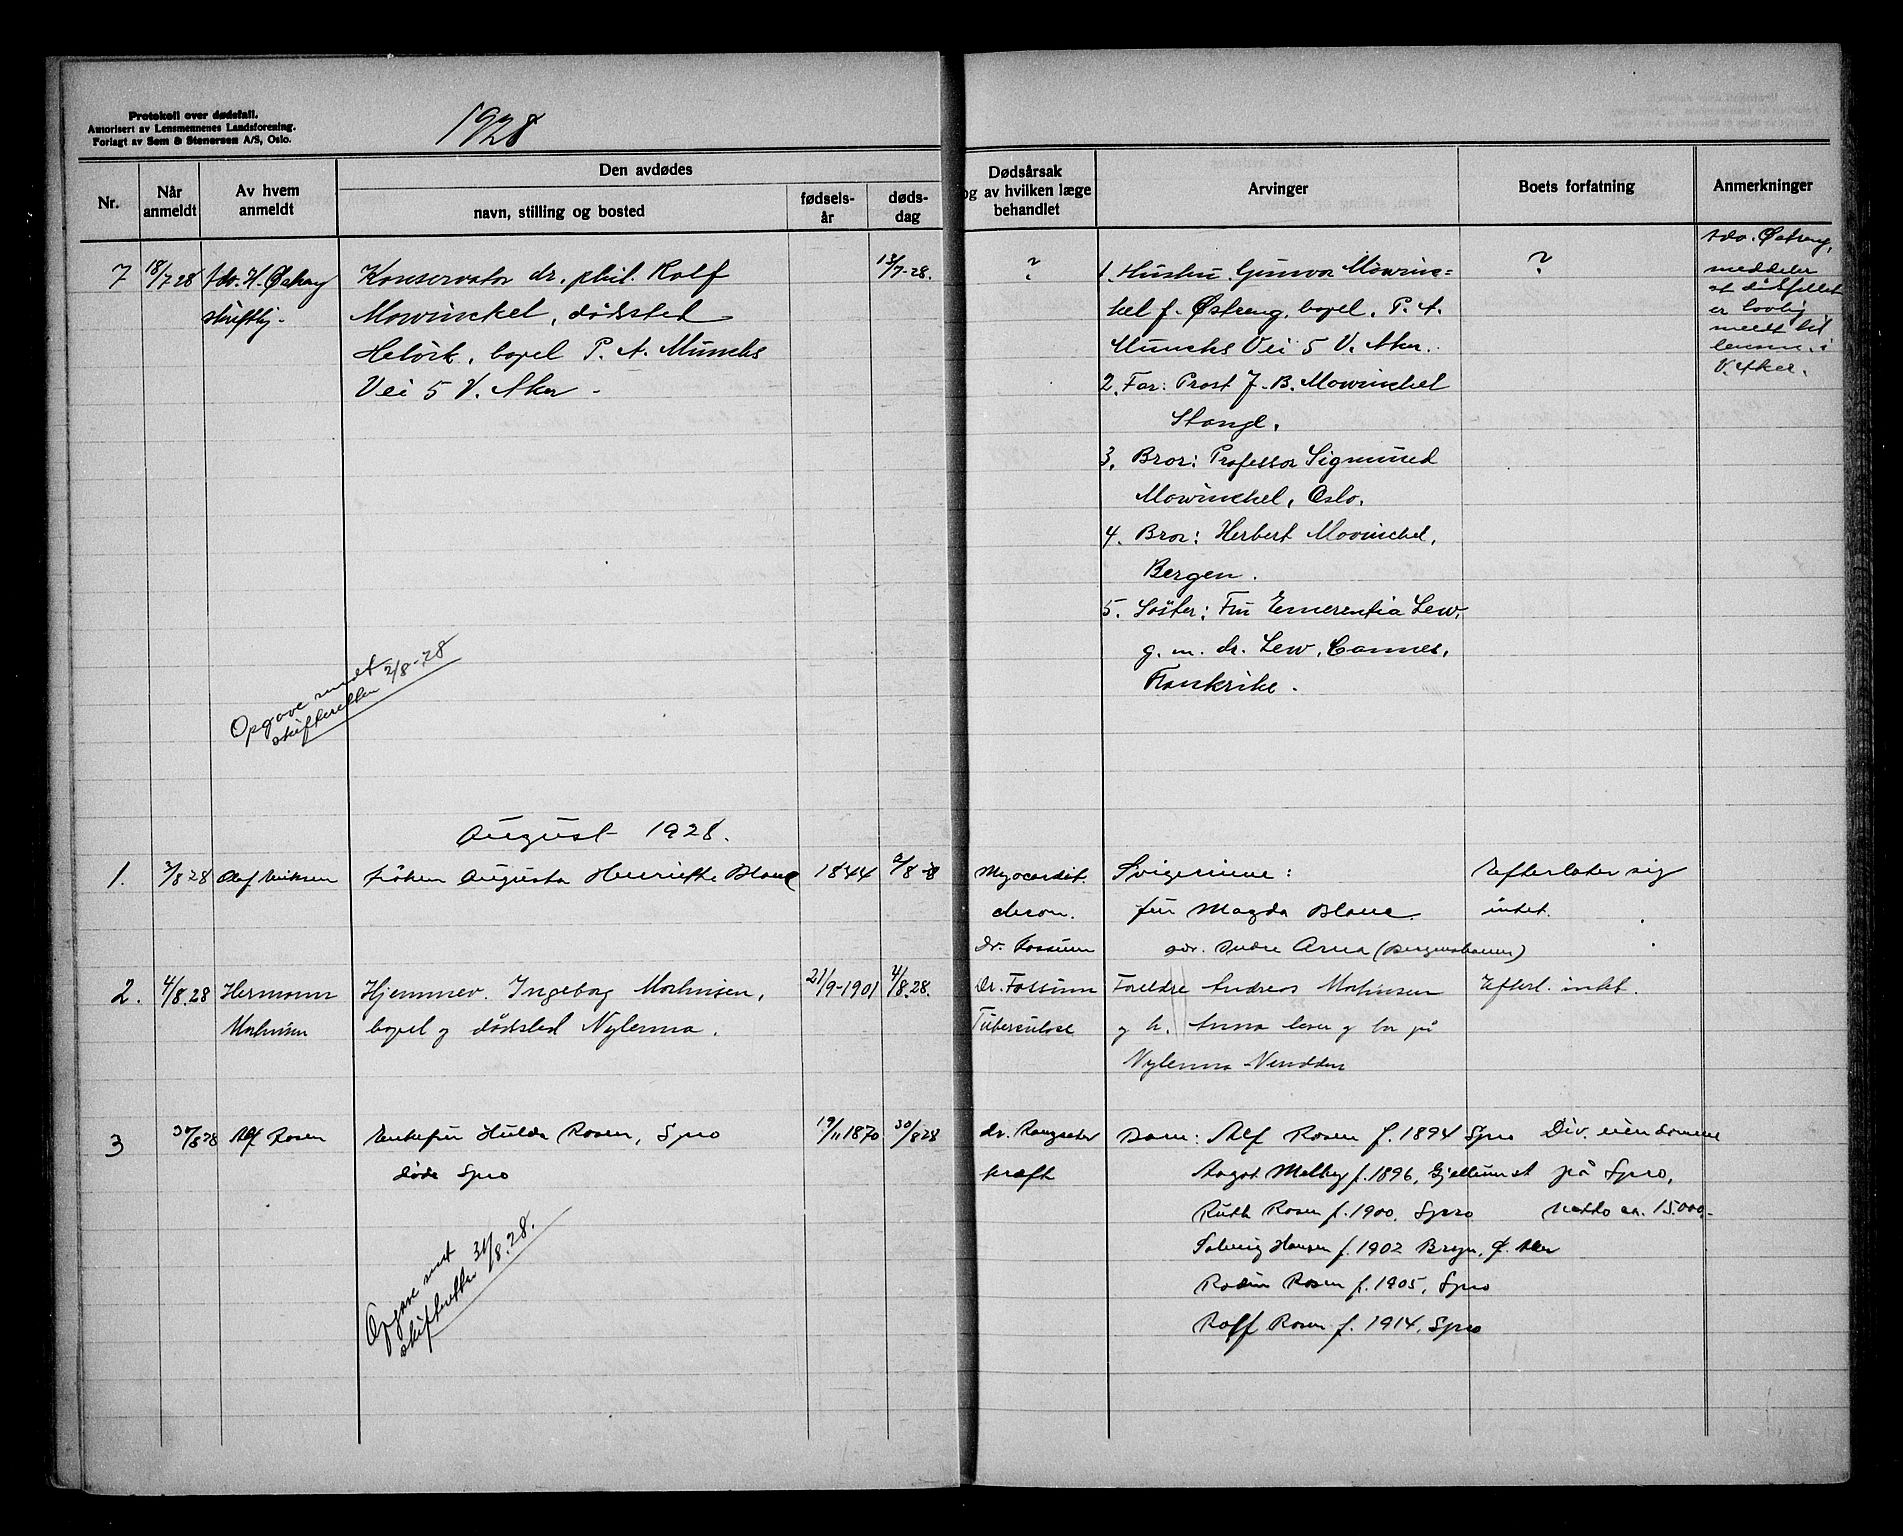 Protokoll over dødsfall.
Autorisert av Lensmennenes Landsforening.
Forlagt av Sem & Stenersen A/S, Oslo.
1928
Nr.
Når anmeldt
Av hvem anmeldt
Den avdødes
navn, stilling og bosted
fødsels-år
døds-dag
Dødsårsak og av hvilken læge behandlet
Arvinger
Boets forfatning
Anmerkninger
7 18/7 28 Adv. H. Østreng
skriftlig.
Konservator dr. phil. Rolf
Mowinckel, dødsted
bopel P. A. Munchs
Vei 5 V. Aker.
13/7-28.
?
1. Hustru Gunvor Mowinc=
kel f. Østreng, bopel. P. A.
Munchs Vei 5 V. Aker.
2. Far: Prost J. B. Mowinckel
Stange.
3. Bror: Professor Sigmund
Mowinckel, Oslo.
4. Bror: Herbert Mowinckel,
Bergen.
5. Søster: Fru Emerentia Lew,
g. m. dr. Lew, Cannes,
Frankrike.
?
Adv. Østreng,
meddeler
at dødsfallet
er lovlig
meldt til
lensm. i
V. Aker.
Opgave sendt
skifteretten 2/8-28
August 1928.
1. 3/8 28 Olaf Eriksen
frøken Augusta Henriette Blauc
1844
Myocardit.
chron.
Dr. Fossum
Svigerinne:
fru Magda Blauc
adr. Indre Arna (Bergensbanen)
Efterlater sig
intet.
2. 4/8.28 Hermann
Mathisen
Hjemmev. Ingeborg Mathisen,
bopel og dødsted Nylenna.
21/9-1901
4/8.28.
Dr. Fossum
Tuberculose
Foreldre Andreas Mathisen
og h. Anna lever og bor på
Nylenna Nesodden
Efterl. intet.
3 30/8 28 Alf Rosen
Enkefru Hulda Rosen, Spro
døde Spro
19/11 1870
30/8 28
dr. Rangseter
kræft
Barn: Alf Rosen f. 1894 Spro
Aagot Melby f. 1896, Gjellum st
Ruth Rosen f. 1900, Spro
Solveig Hansen f. 1902 Bryn, Ø. Aker
Rosen f. 1905, Spro
Rolf Rosen f. 1914, Spro
Div. eiendomme
på Spro,
Netto ca. 15.000,-
Opgave sendt
skifteretten 31/8.28.